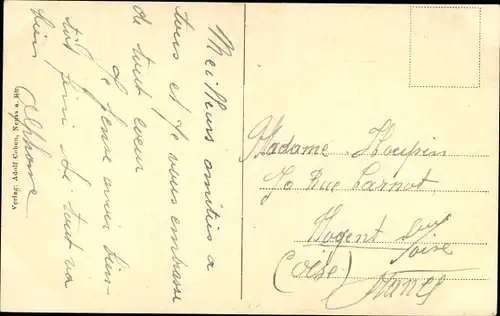 Meilleurs amitiés a
tous et je vous embrasse
de tout coeur
Je pense avoir bien-
tôt fini le tout va
bien Alphonse
Verlag: Adolf Cohen, Neuss a. Rh.
Madame Houpin
70 Rue Carnot
Nogent sur
Oise
(Oise) France